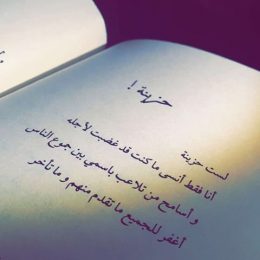 حزينة !
لست حزينة
أنا فقط أنسى ما كنت قد غضبت لأجله
و أسامح من تلاعب باسمي بين جموع الناس
أغفر للجميع ما تقدم منهم و ما تأخر